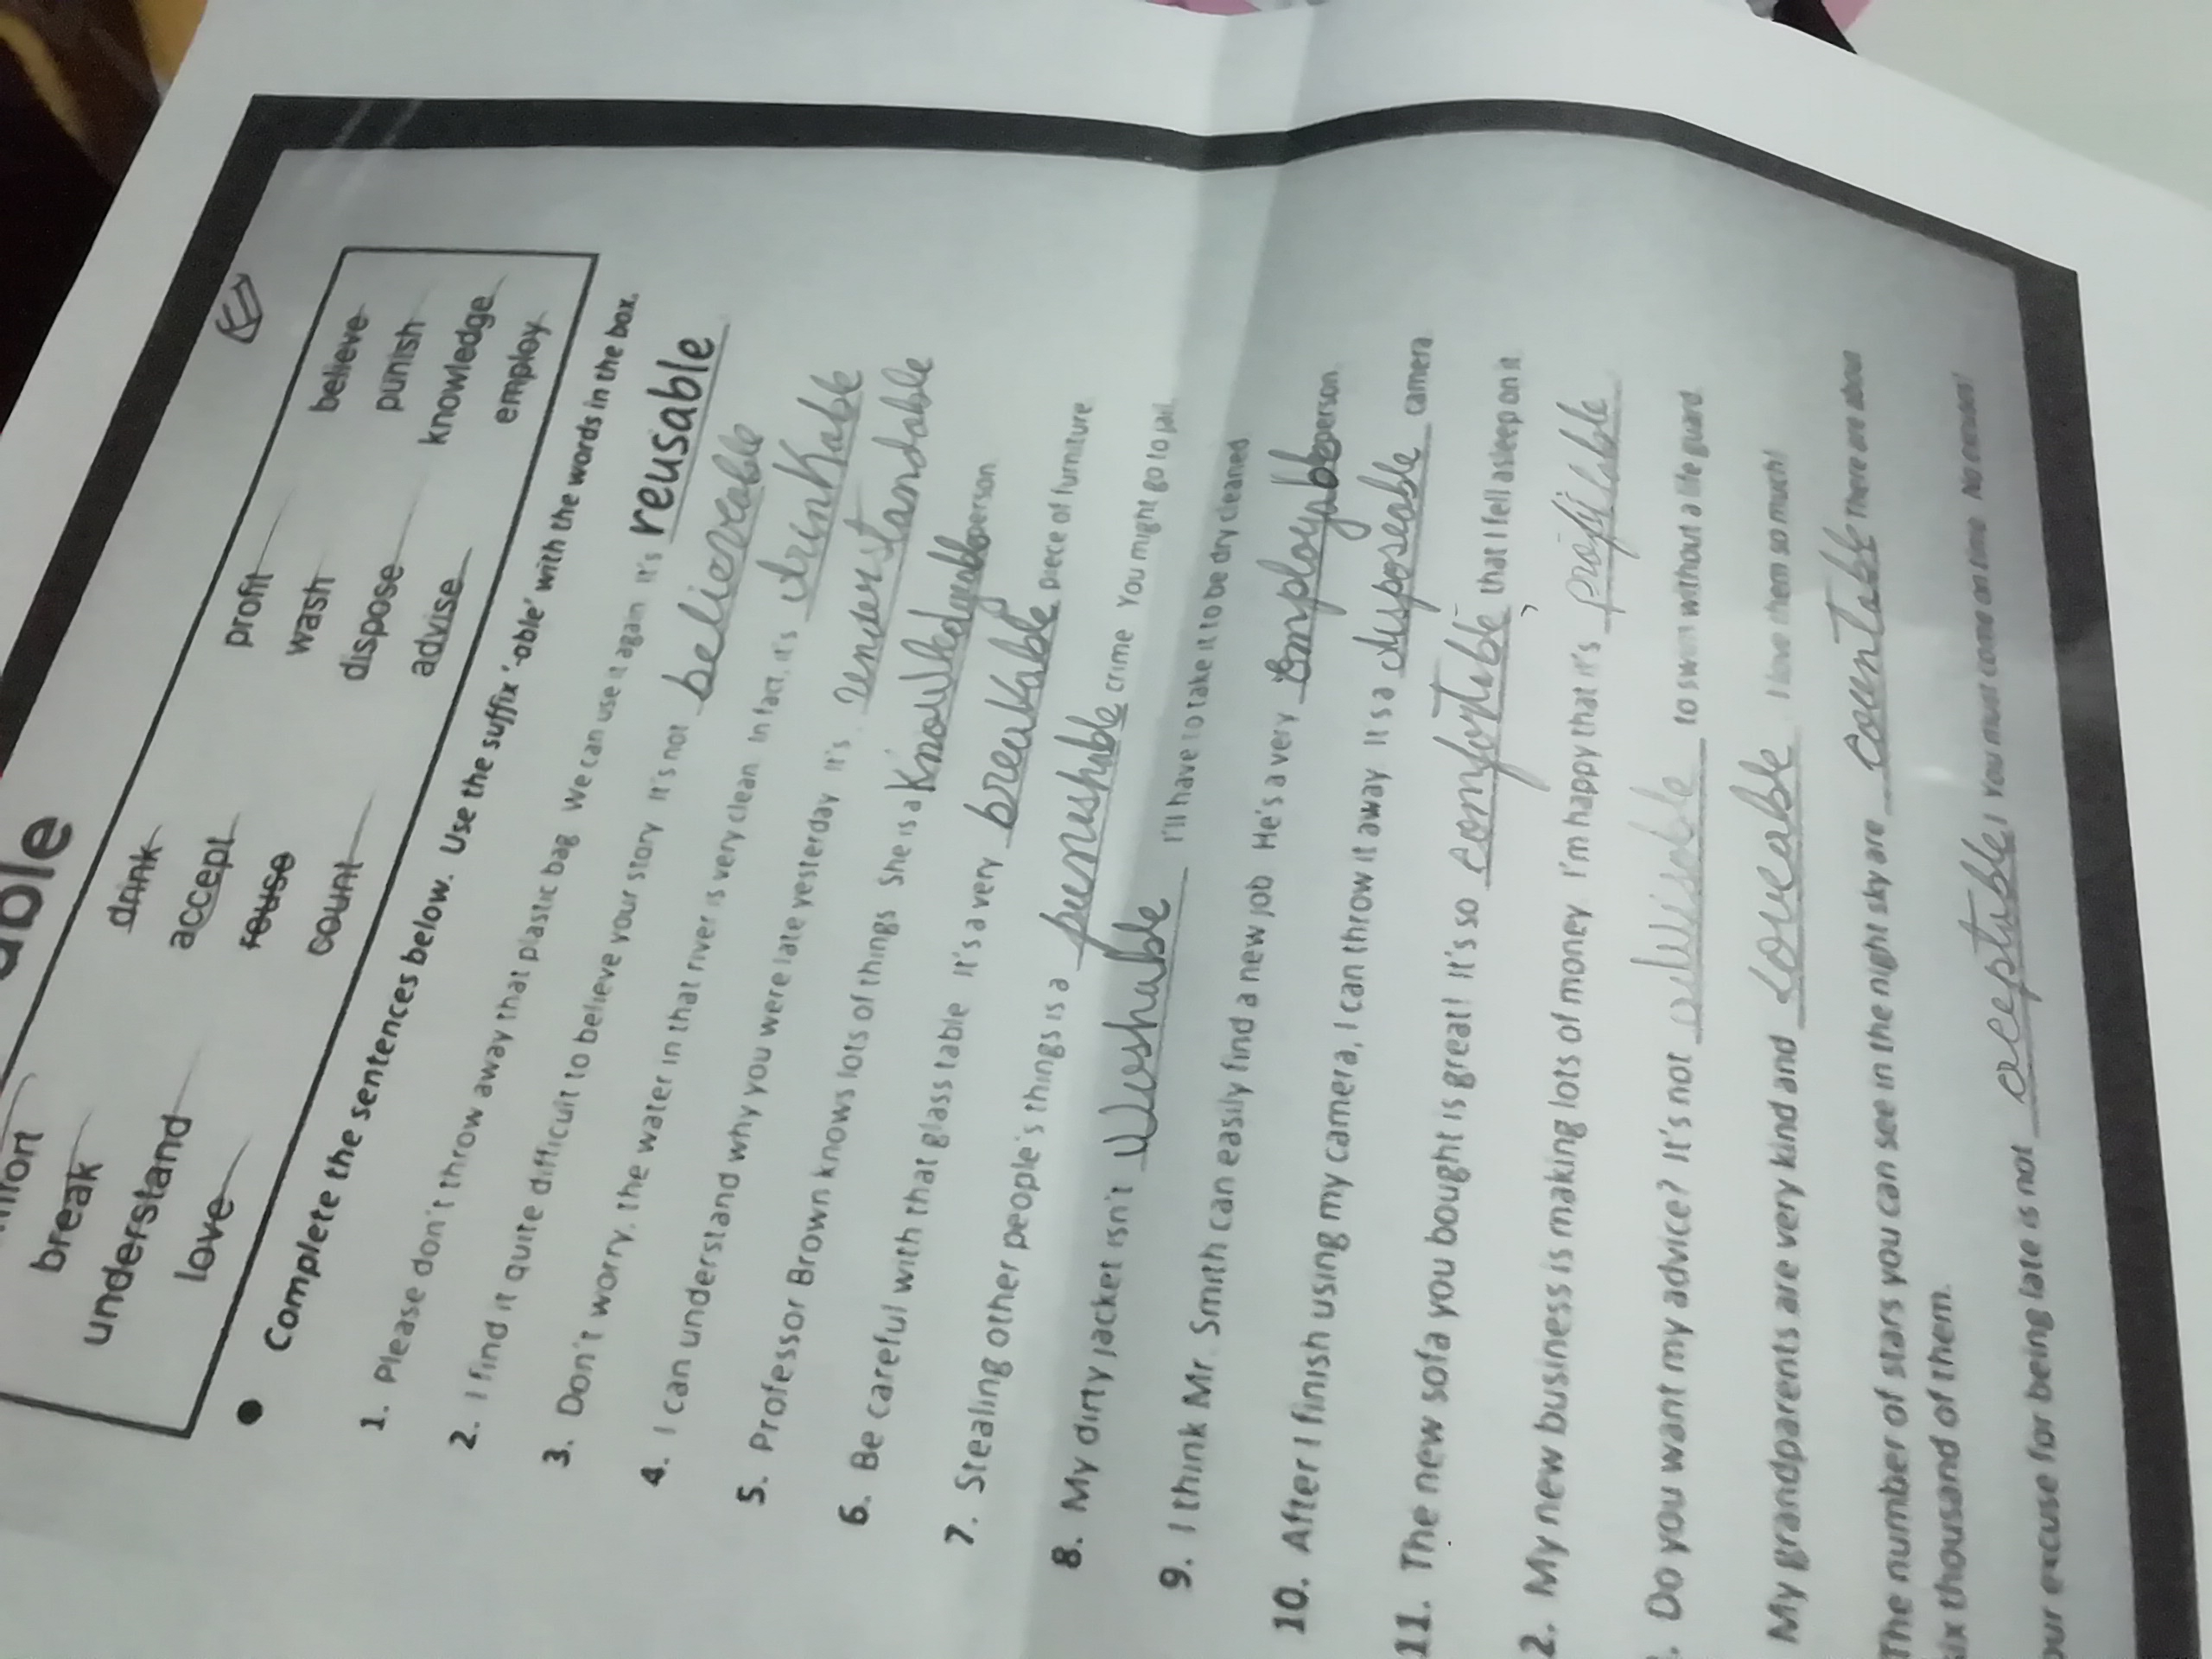 able
break
understand
love
drink
accept
reuse
count
profit
wash
dispose
advise
believe
punish
knowledge
employ
Complete the sentences below. Use the suffix '-able' with the words in the box.
1. Please don't throw away that plastic bag We can use it again It's reusable
2. I find it quite difficult to believe your story It's not believeable
3. Don't worry, the water in that river is very clean In fact, it's drinkable
4. I can understand why you were late yesterday It's understandable
5. Professor Brown knows lots of things She is a knowledgeable person
6. Be careful with that glass table It's a very breakable piece of furniture
7. Stealing other people's things is a punishable crime You might go to jail
8. My dirty jacket isn't washable I'll have to take it to be dry cleaned
9. I think Mr. Smith can easily find a new job He's a very employable person
10. After I finish using my camera, I can throw it away It is a disposeable camera
11. The new sofa you bought is great! It's so comfortable that I fell asleep on it
2. My new business is making lots of money. I'm happy that it's profitable
. Do you want my advice? It's not advisable to swim without a life guard
My grandparents are very kind and loveable I love them so much!
The number of stars you can see in the night sky are countable There are about
six thousand of them.
our excuse for being late is not acceptable, You must come on time No excuses!